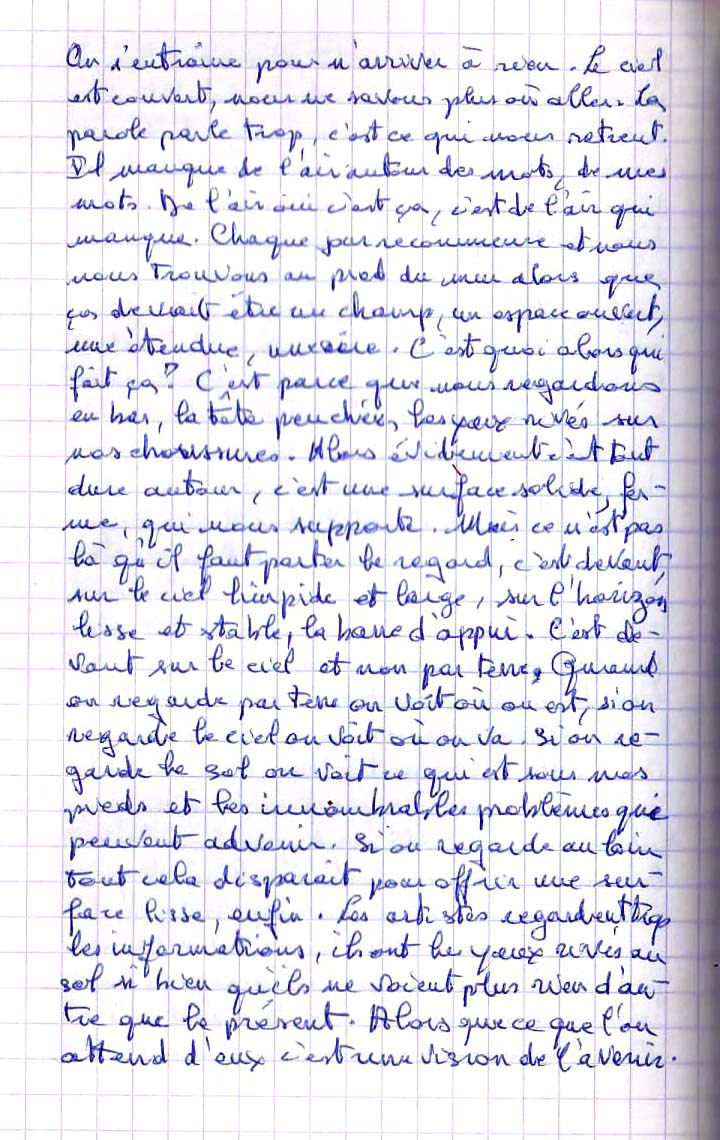 On s'entraîne pour n'arriver à rien. Le ciel
est couvert, nous ne savons plus où aller. La
parole parle trop, c'est ce qui nous retient.
Il manque de l'air autour des mots, de mes
mots. De l'air oui c'est ça, c'est de l'air qui
manque. Chaque jour recommence et nous
nous trouvons au pied du mur alors que
ça devrait être un champ, un espace ouvert,
une étendue, . C'est quoi alors qui
fait ça? C'est parce que nous regardons
en bas, la tête penchée, les yeux rivés sur
nos chaussures. Alors évidemment c'est tout
dure autour, c'est une surface solide, fer-
me, qui nous supporte. Mais ce n'est pas
là qu'il faut porter le regard, c'est devant,
sur le ciel limpide et large, sur l'horizon
lisse et stable, la barre d'appui. C'est de-
vant sur le ciel et non par terre. Quand
on regarde par terre on voit où on est, si on
regarde le ciel on voit où on va. Si on re-
garde le sol on voit ce qui est sous nos
pieds et les innombrables problèmes qui
peuvent advenir. Si on regarde au loin
tout cela disparait pour offrir une sur-
face lisse, enfin. Les artistes regardent trop
les informations, ils ont les yeux rivés au
sol si bien qu'ils ne voient plus rien d'au-
tre que le présent. Alors que ce que l'on
attend d'eux c'est une vision de l'avenir.